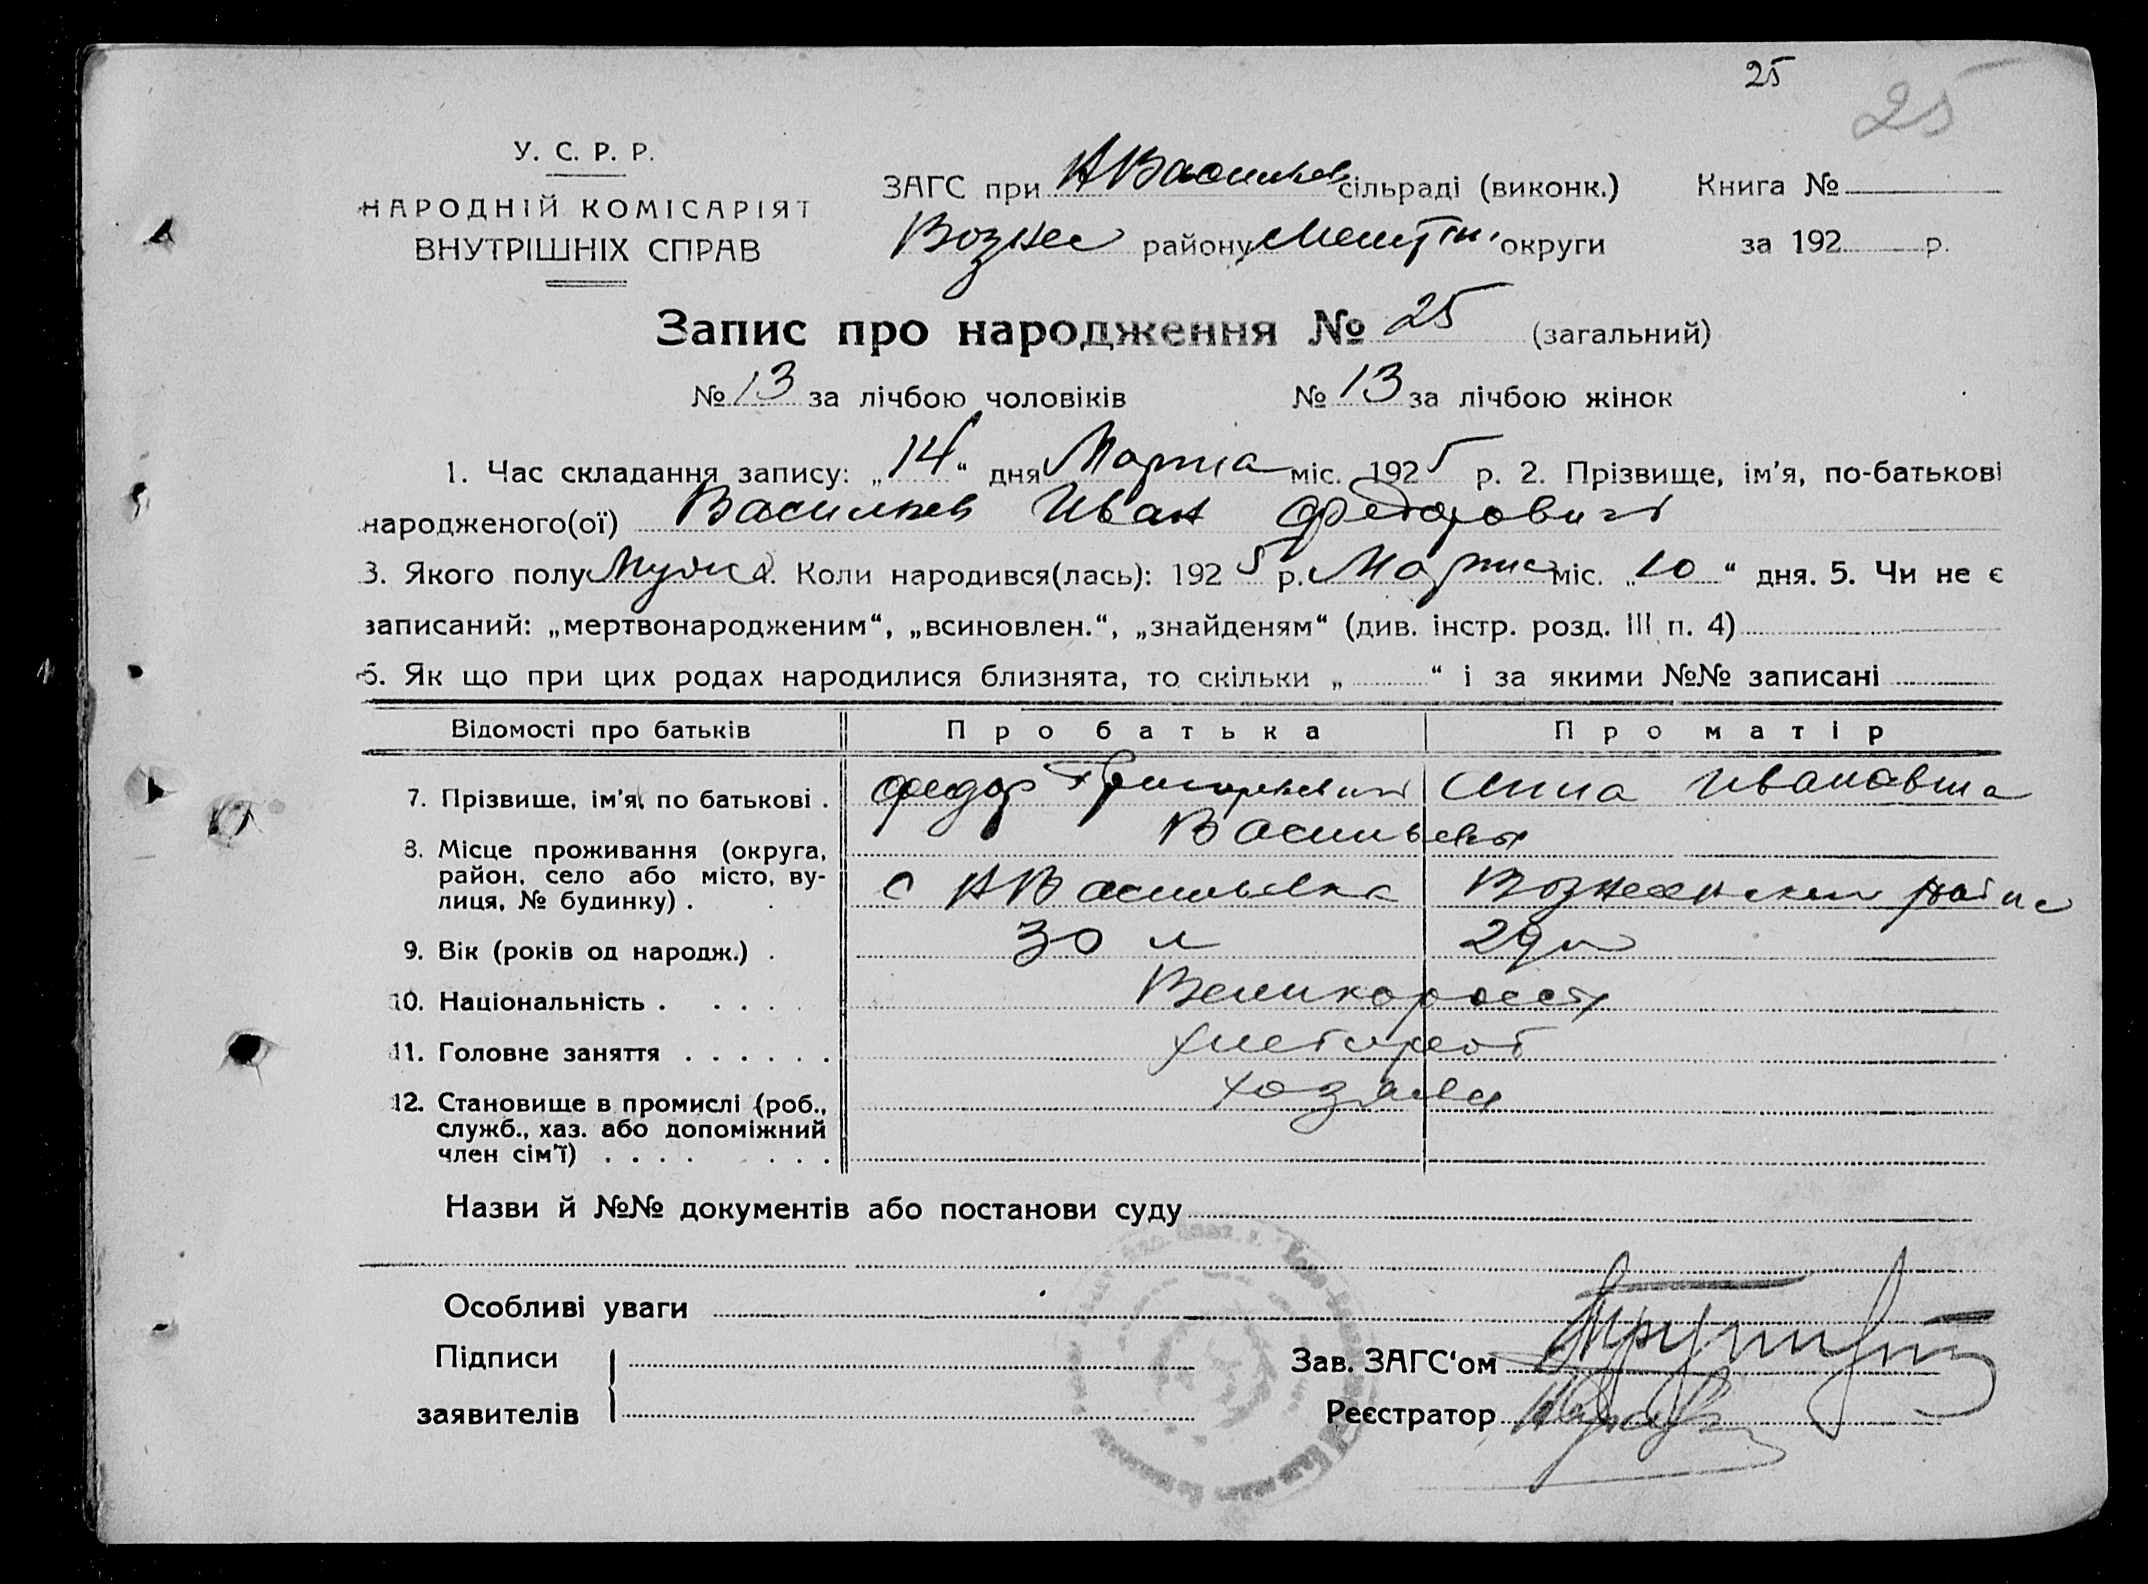 25
25
У. С. Р. Р.
НАРОДНІЙ КОМІСАРІЯТ
ВНУТРІШНІХ СПРАВ
ЗАГС при сільраді (виконк.) Книга №
Вознес району Мелит округи за 192 р.
Запис про народження № 25 (загальний)
№ 13 за лічбою чоловіків № 13 за лічбою жінок
1. Час складання запису: „14“ дня Марта міс. 1925 р. 2. Прізвище, ім'я, по-батькові
народженого(ої) Иван Федорович
3. Якого полу Коли народився(лась): 1925 р. міс. „10“ дня. 5. Чи не є
записаний: „мертвонародженим“, „всиновлен.“, „знайденям“ (див. інстр. розд. III п. 4)
6. Як що при цих родах народилися близнята, то скільки „ “ і за якими №№ записані
Відомості про батьків Про батька Про матір
7. Прізвище, ім'я, по батькові . Федор Григорьевич Анна Ивановна
Васильевы
8. Місце проживання (округа,
район, село або місто, ву-
лиця, № будинку) . с НВасильевка
9. Вік (років од народж.) . 30 л 29 л
10. Національність . . . . Великоросы
11. Головне заняття . . . . . .
12. Становище в промислі (роб., хозяева
служб., хаз. або допоміжний
член сім'ї) . . . . . . .
Назви й №№ документів або постанови суду
Особливі уваги
Підписи
заявителів
Зав. ЗАГС‘ом
Реєстратор